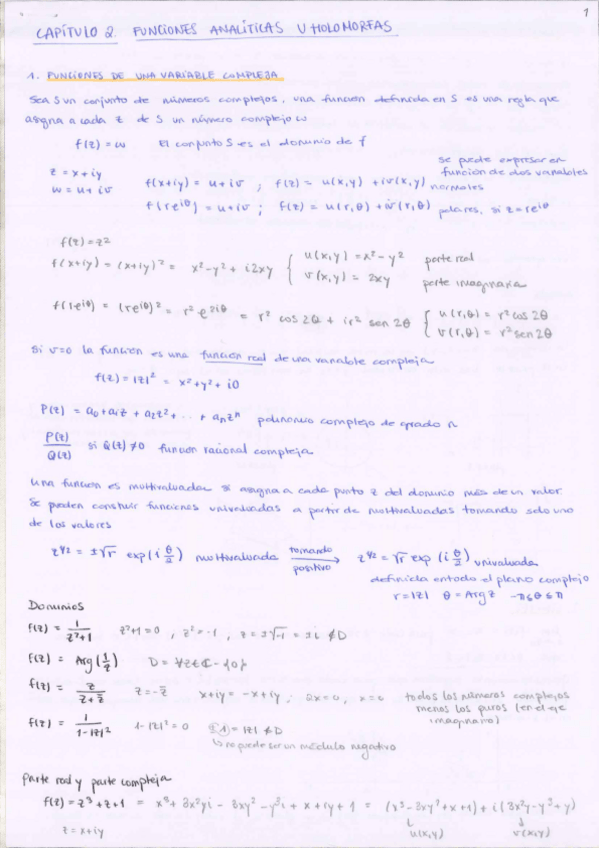 1
CAPÍTULO 2 FUNCIONES ANALÍTICAS U HOLOMORFAS
1. FUNCIONES DE UNA VARIABLE COMPLEJA
Sea S un conjunto de números complejos, una función definida en S es una regla que
asigna a cada z de S un número complejo ω
f(z) = ω El conjunto S es el dominio de f
z = x+iy
w = u+iv
f(x+iy) = u+iv ; f(z) = u(x,y) + iv(x,y) normales
Se puede expresar en
función de dos variables
f(re^iθ) = u+iv ; f(z) = u(r,θ) + iv(r,θ) polares, si z=re^iθ
f(z) = z²
f(x+iy) = (x+iy)² = x²-y² + i2xy { u(x,y) = x²-y² parte real
v(x,y) = 2xy parte imaginaria
f(re^iθ) = (re^iθ)² = r² e^2iθ = r² cos 2θ + ir² sen 2θ { u(r,θ) = r² cos 2θ
v(r,θ) = r² sen 2θ
Si v=0 la función es una función real de una variable compleja
f(z) = |z|² = x²+y²+i0
P(z) = a₀+a₁z+a₂z²+...+aₙzⁿ polinomio complejo de grado n
P(z)/Q(z) si Q(z)≠0 función racional compleja
Una función es multivaluada si asigna a cada punto z del dominio más de un valor.
Se pueden construir funciones univaluadas a partir de multivaluadas tomando solo uno
de los valores
z^½ = ±√r exp(i θ/2) multivaluada tomando positivo → z^½ = √r exp(i θ/2) univaluada
definida en todo el plano complejo
r=|z| θ = Arg z -π≤θ≤π
Dominios
f(z) = 1/(z²+1) z²+1=0 , z²=-1 , z=±√-1 = ±i ∉D
f(z) = Arg(1/z) D = ∀z∈ℂ-{0}
f(z) = z/(z+z̄) z=-z̄ x+iy = -x+iy ; 2x=0, x=0 todos los números complejos
menos los puros (en el eje
imaginario)
f(z) = 1/(1-|z|²) 1-|z|²=0 ±1 = |z| ∉D
↳ no puede ser un módulo negativo
Parte real y parte compleja
f(z) = z³+z+1 = x³+3x²yi - 3xy² - y³i + x+iy+1 = (x³-3xy²+x+1) + i(3x²y-y³+y)
z = x+iy u(x,y) v(x,y)